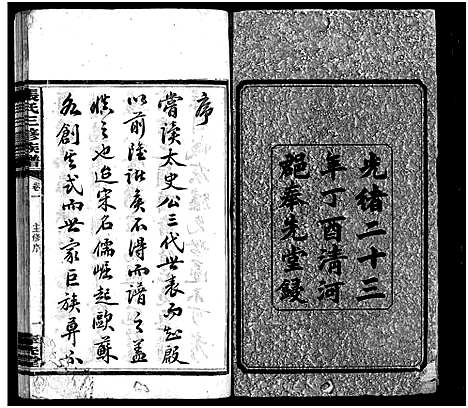 光緒二十三
年丁酉清河
郡奉先堂鋟
序
嘗讀太史公三代世表而知殷
以前諸侯不得而譜之蓋
慎之也迨宋名儒崛起歐蘇
各創其式而世家巨族莫不
張氏三修族譜
卷一
主修序
一